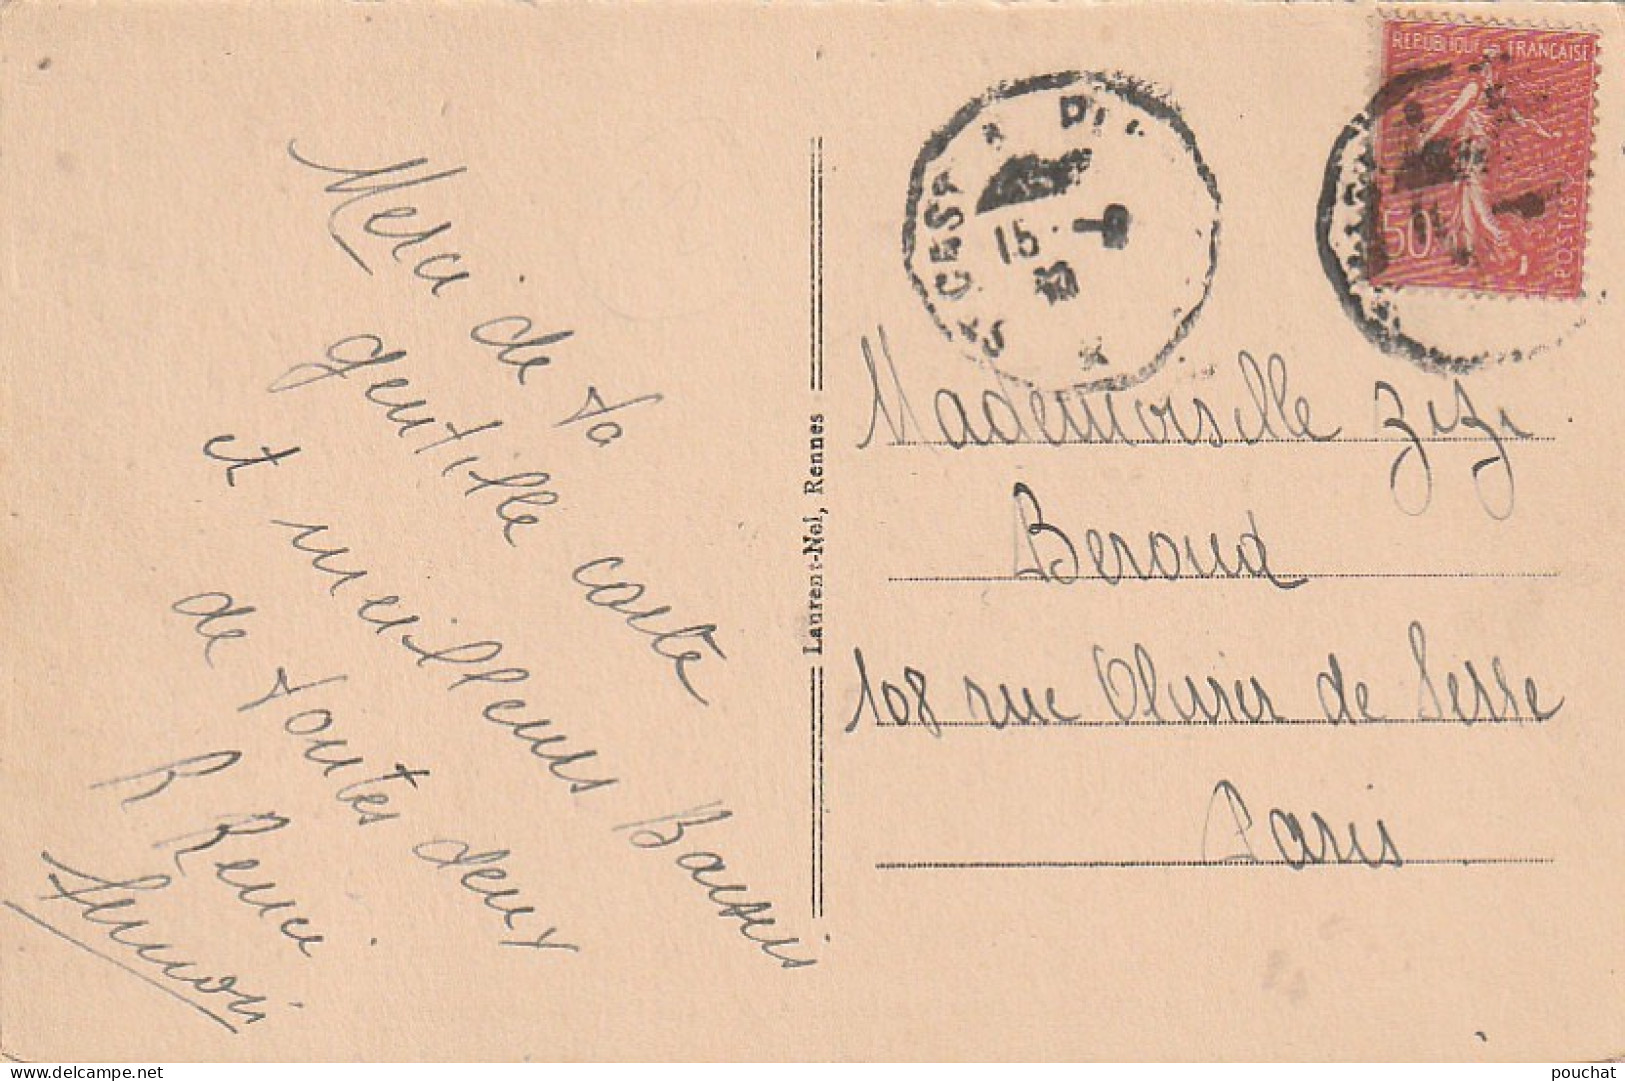 Merci de ta
gentille carte
et meilleurs Baisers
de toutes deux
R Renée
Laurent-Nel, Rennes
REPUBLIQUE FRANCAISE
50c
POSTES
ST CAST
15
Mademoiselle Zizi
Beroud
108 rue Olivier de Serre
Paris
pouchat